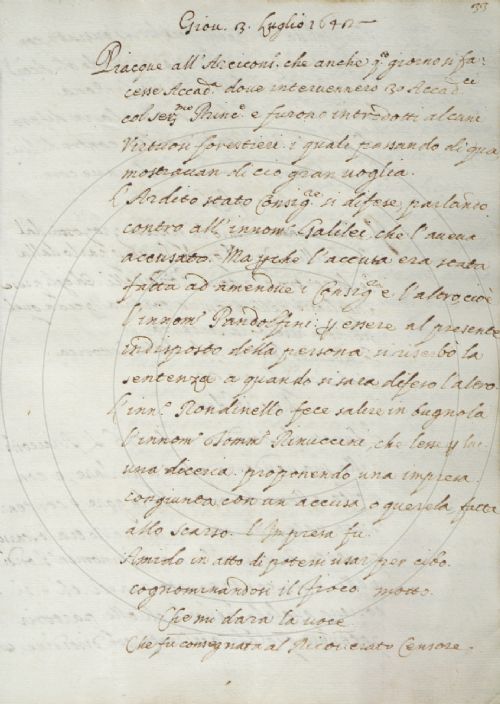 33
Giov. 3. Luglio 1642
Piacque all'Arcicons. che anche qo giorno si fa:
cesse Accada. dove intervennero 30 Accadci
col sermo Prince. e furono introdotti alcuni
Virtuosi forestieri i quali passando di qua
mostravan di ciò gran voglia.
L'Ardito stato Consigre si difese parlando
contro all'innom. Galilei che l'aveva
accusato. Ma perche l'accusa era stata
fatta ad amendue i Consigri e l'altro cioè
l'innom. Pandolfini p essere al presente
indisposto della persona si riserbò la
sentenza a quando si sarà difeso l'altro.
L'inno. Rondinello fece salire in bugnola
l'innomo Tommo Rinuccini, che lesse p lui
una diceria proponendo una impresa
congiunta con un'accusa o querela fatta
allo scarso. L'Impresa fu.
Amido in atto di potersi usar per cibo.
cognominandosi il Roco motto.
Che mi darà la voce
Che fu consegnata al Ricoverato Censore.